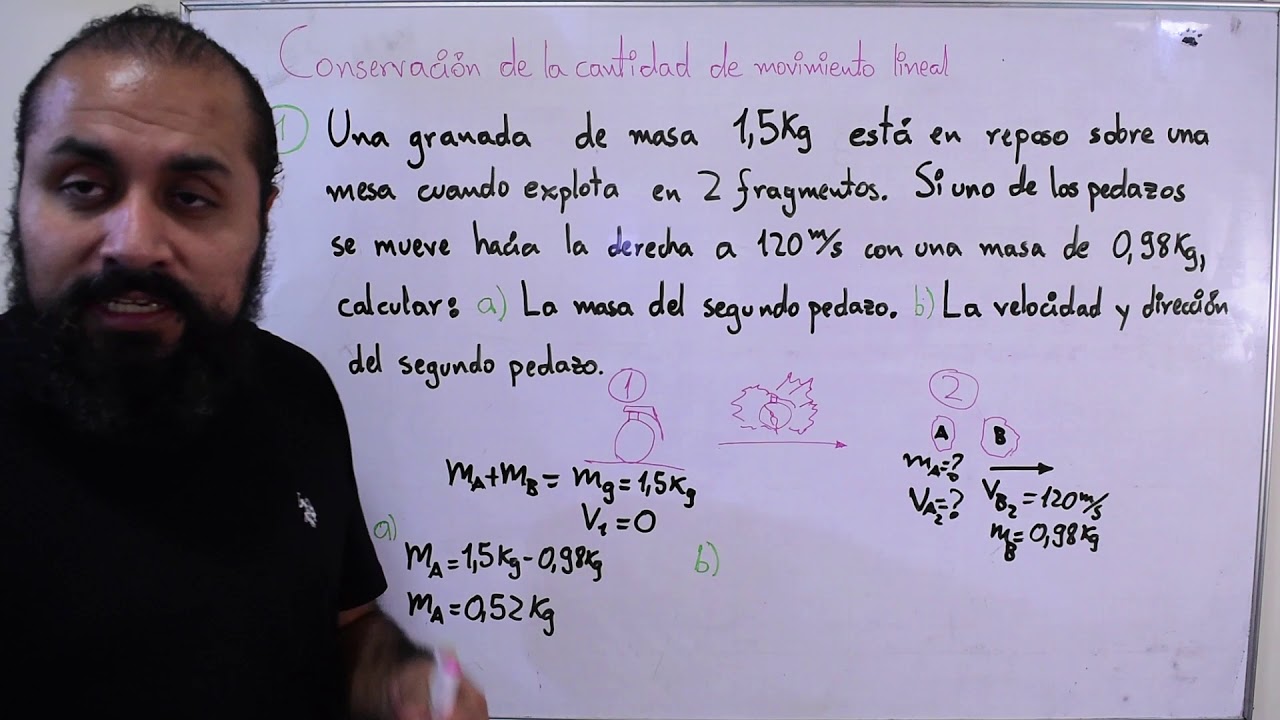 Conservación de la cantidad de movimiento lineal
1) Una granada de masa 1,5Kg está en reposo sobre una
mesa cuando explota en 2 fragmentos. Si uno de los pedazos
se mueve hacia la derecha a 120 m/s con una masa de 0,98Kg,
calcular: a) La masa del segundo pedazo. b) La velocidad y dirección
del segundo pedazo.
1
2
A B
mA+mB = mg = 1,5Kg
V1 = 0
mA=?
VA2=?
VB2 = 120 m/s
mB = 0,98Kg
a)
mA = 1,5Kg - 0,98Kg
mA = 0,52Kg
b)